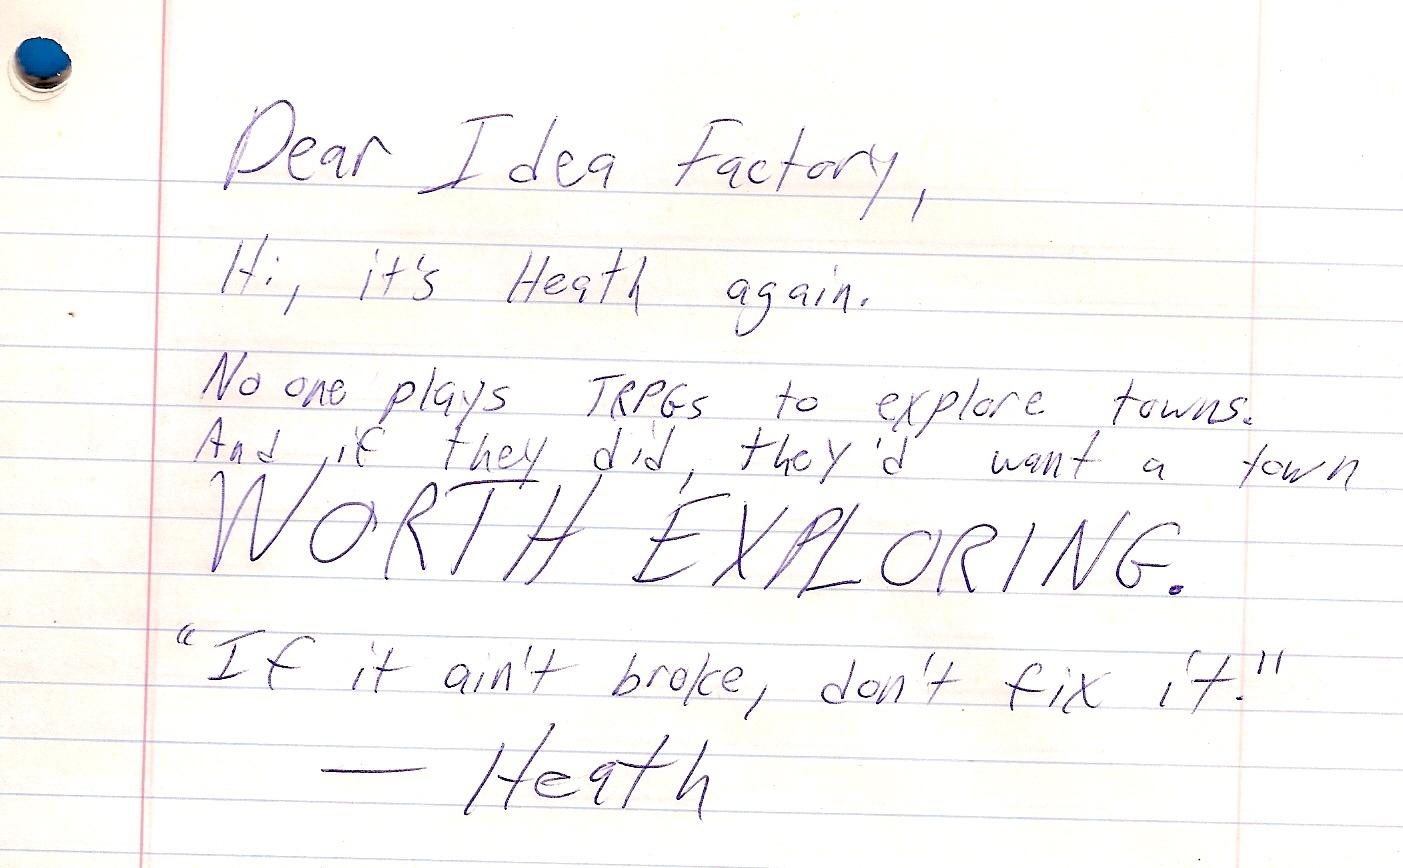 Dear Idea Factory,
Hi, it's Heath again.
No one plays TRPGs to explore towns.
And if they did, they'd want a town
WORTH EXPLORING.
"If it ain't broke, don't fix it."
— Heath